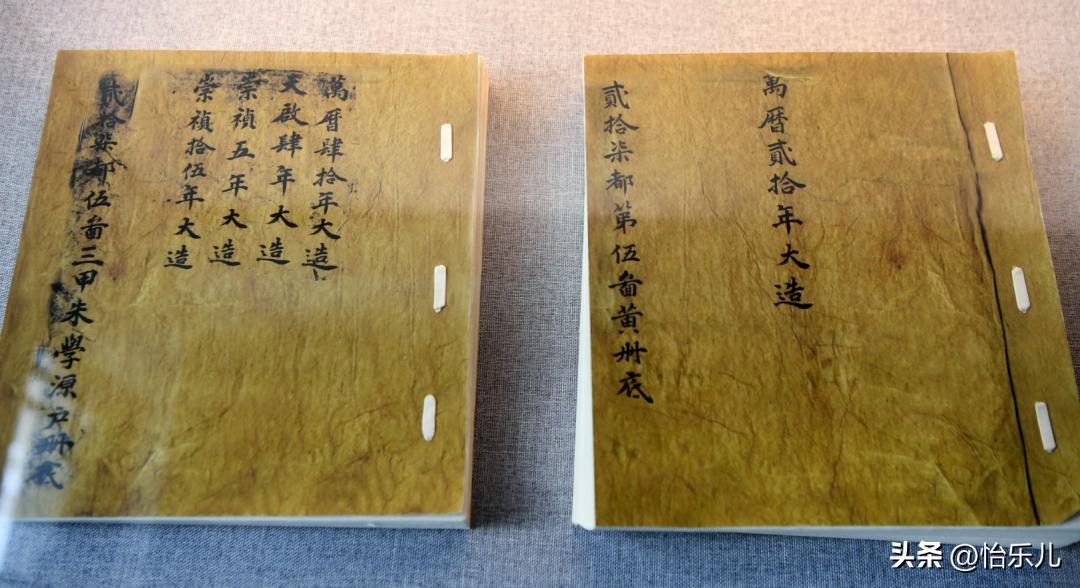 萬暦肆拾年大造
天啟肆年大造
崇禎五年大造
崇禎拾伍年大造
貳拾柒都伍啚三甲朱學源戶冊底
萬暦貳拾年大造
貳拾柒都第伍啚黃冊底
头条 @怡乐儿